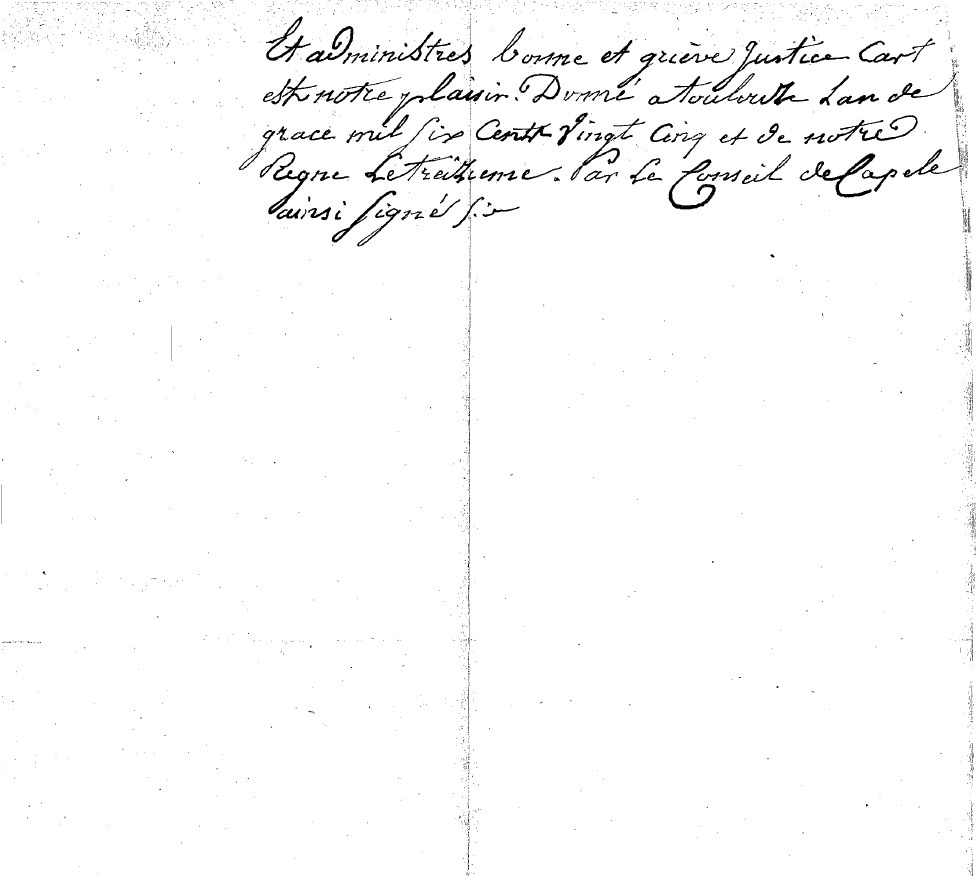 Et administres bonne et griève Justice Cart
est notre plaisir. Donné a toulouze Lan de
grace mil six Cents Vingt Cinq et de notre
Regne Letreizieme. Par Le Conseil de Capele
ainsi signé